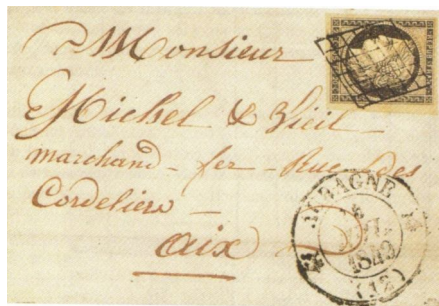 Monsieur
Michel & Vieil
marchand - fer - Rue des
Cordeliers -
aix
AUBAGNE
1849
(12)